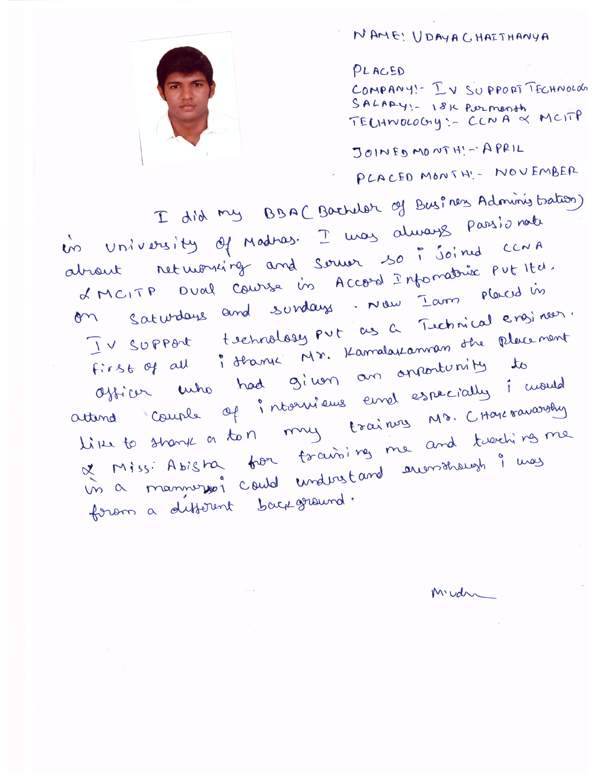 NAME: UDAYA CHAITHANYA
PLACED
COMPANY:- IV SUPPORT TECHNOLOG
SALARY:- 18K Per month
TECHNOLOGY:- CCNA & MCITP
JOINED MONTH:- APRIL
PLACED MONTH:- NOVEMBER
I did my BBA (Bachelor of Business Administration)
in University of Madras. I was always passionate
about networking and server so i joined CCNA
& MCITP Dual Course in Accord Infomatrix Pvt ltd.
on saturdays and sundays. Now I am placed in
IV SUPPORT technology Pvt as a Technical engineer.
First of all i thank Mr. Kamalakannan the placement
officer who had given an opportunity to
attend couple of interviews and especially i would
like to thank a ton my trainers Mr. CHAKravarthy
& Miss. Abisha for training me and teaching me
in a manner i could understand eventhough i was
from a different background.